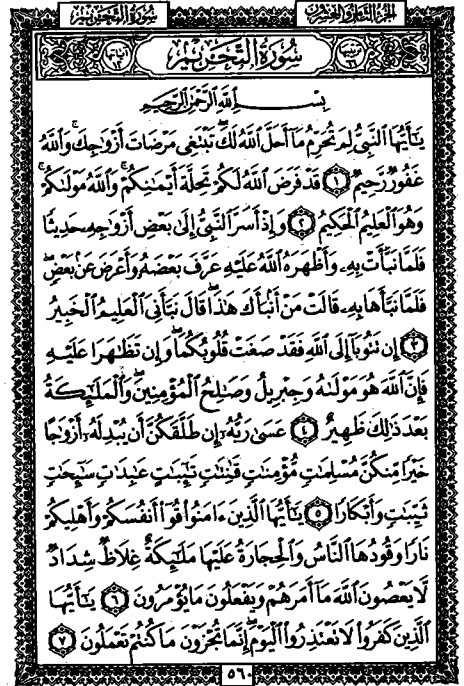 الجزء الثامن والعشرون
سورة التحريم
ترتيبها ٦٦
سُورَةُ التَّحْرِيمِ
آياتها ١٢
بِسْمِ اللَّهِ الرَّحْمَٰنِ الرَّحِيمِ
يَٰٓأَيُّهَا ٱلنَّبِىُّ لِمَ تُحَرِّمُ مَآ أَحَلَّ ٱللَّهُ لَكَۖ تَبْتَغِى مَرْضَاتَ أَزْوَٰجِكَۚ وَٱللَّهُ
غَفُورٌ رَّحِيمٌ ١ قَدْ فَرَضَ ٱللَّهُ لَكُمْ تَحِلَّةَ أَيْمَٰنِكُمْۚ وَٱللَّهُ مَوْلَىٰكُمْۖ
وَهُوَ ٱلْعَلِيمُ ٱلْحَكِيمُ ٢ وَإِذْ أَسَرَّ ٱلنَّبِىُّ إِلَىٰ بَعْضِ أَزْوَٰجِهِۦ حَدِيثًا
فَلَمَّا نَبَّأَتْ بِهِۦ وَأَظْهَرَهُ ٱللَّهُ عَلَيْهِ عَرَّفَ بَعْضَهُۥ وَأَعْرَضَ عَنۢ بَعْضٍۖ
فَلَمَّا نَبَّأَهَا بِهِۦ قَالَتْ مَنْ أَنۢبَأَكَ هَٰذَاۖ قَالَ نَبَّأَنِىَ ٱلْعَلِيمُ ٱلْخَبِيرُ
٣ إِن تَتُوبَآ إِلَى ٱللَّهِ فَقَدْ صَغَتْ قُلُوبُكُمَاۖ وَإِن تَظَٰهَرَا عَلَيْهِ
فَإِنَّ ٱللَّهَ هُوَ مَوْلَىٰهُ وَجِبْرِيلُ وَصَٰلِحُ ٱلْمُؤْمِنِينَۖ وَٱلْمَلَٰٓئِكَةُ
بَعْدَ ذَٰلِكَ ظَهِيرٌ ٤ عَسَىٰ رَبُّهُۥٓ إِن طَلَّقَكُنَّ أَن يُبْدِلَهُۥٓ أَزْوَٰجًا
خَيْرًا مِّنكُنَّ مُسْلِمَٰتٍ مُّؤْمِنَٰتٍ قَٰنِتَٰتٍ تَٰٓئِبَٰتٍ عَٰبِدَٰتٍ سَٰٓئِحَٰتٍ
ثَيِّبَٰتٍ وَأَبْكَارًا ٥ يَٰٓأَيُّهَا ٱلَّذِينَ ءَامَنُوا۟ قُوٓا۟ أَنفُسَكُمْ وَأَهْلِيكُمْ
نَارًا وَقُودُهَا ٱلنَّاسُ وَٱلْحِجَارَةُ عَلَيْهَا مَلَٰٓئِكَةٌ غِلَاظٌ شِدَادٌ
لَّا يَعْصُونَ ٱللَّهَ مَآ أَمَرَهُمْ وَيَفْعَلُونَ مَا يُؤْمَرُونَ ٦ يَٰٓأَيُّهَا
ٱلَّذِينَ كَفَرُوا۟ لَا تَعْتَذِرُوا۟ ٱلْيَوْمَۖ إِنَّمَا تُجْزَوْنَ مَا كُنتُمْ تَعْمَلُونَ ٧
٥٦٠